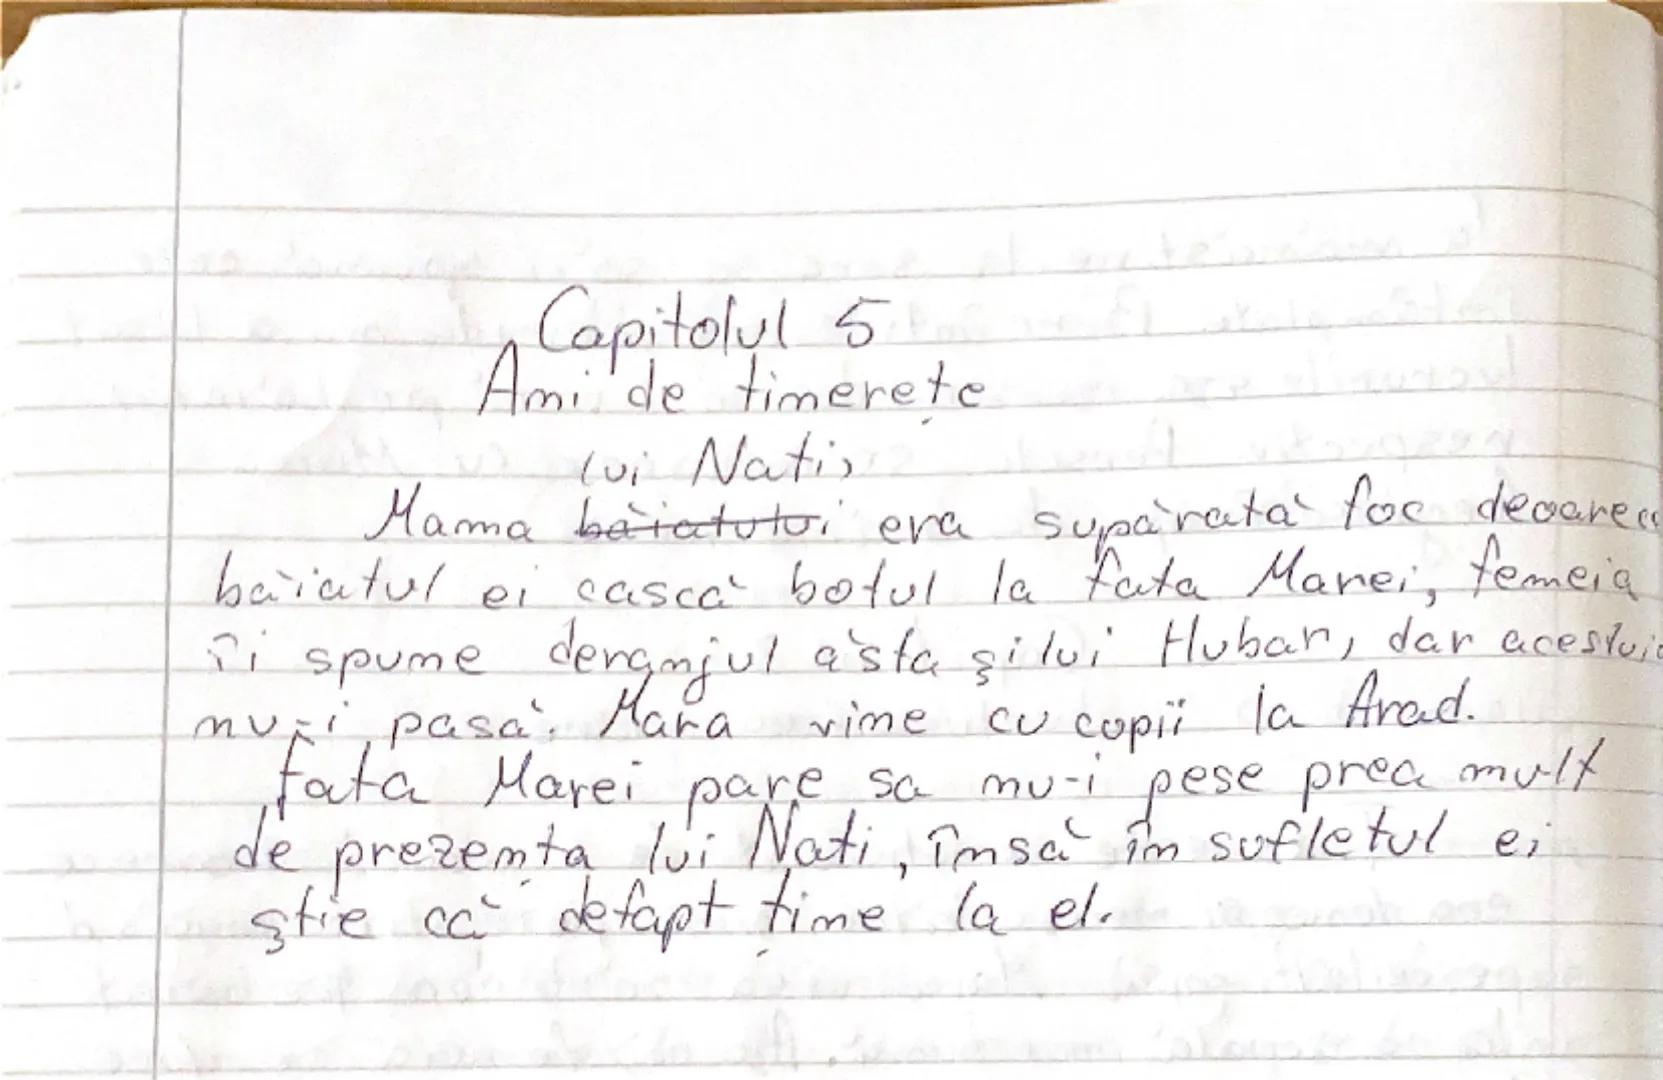 Capitolul 5
Ani de tinerețe
lui Nati,
Mama băiatului era supărată foc deoarece
băiatul ei cască botul la fata Marei, femeia
îi spune deranjul ăsta și lui Hubăr, dar acestuia
nu-i pasă. Mara vine cu copii la Arad.
fata Marei pare sa nu-i pese prea mult
de prezenta lui Nati, însă în sufletul ei
știe că defapt ține la el.